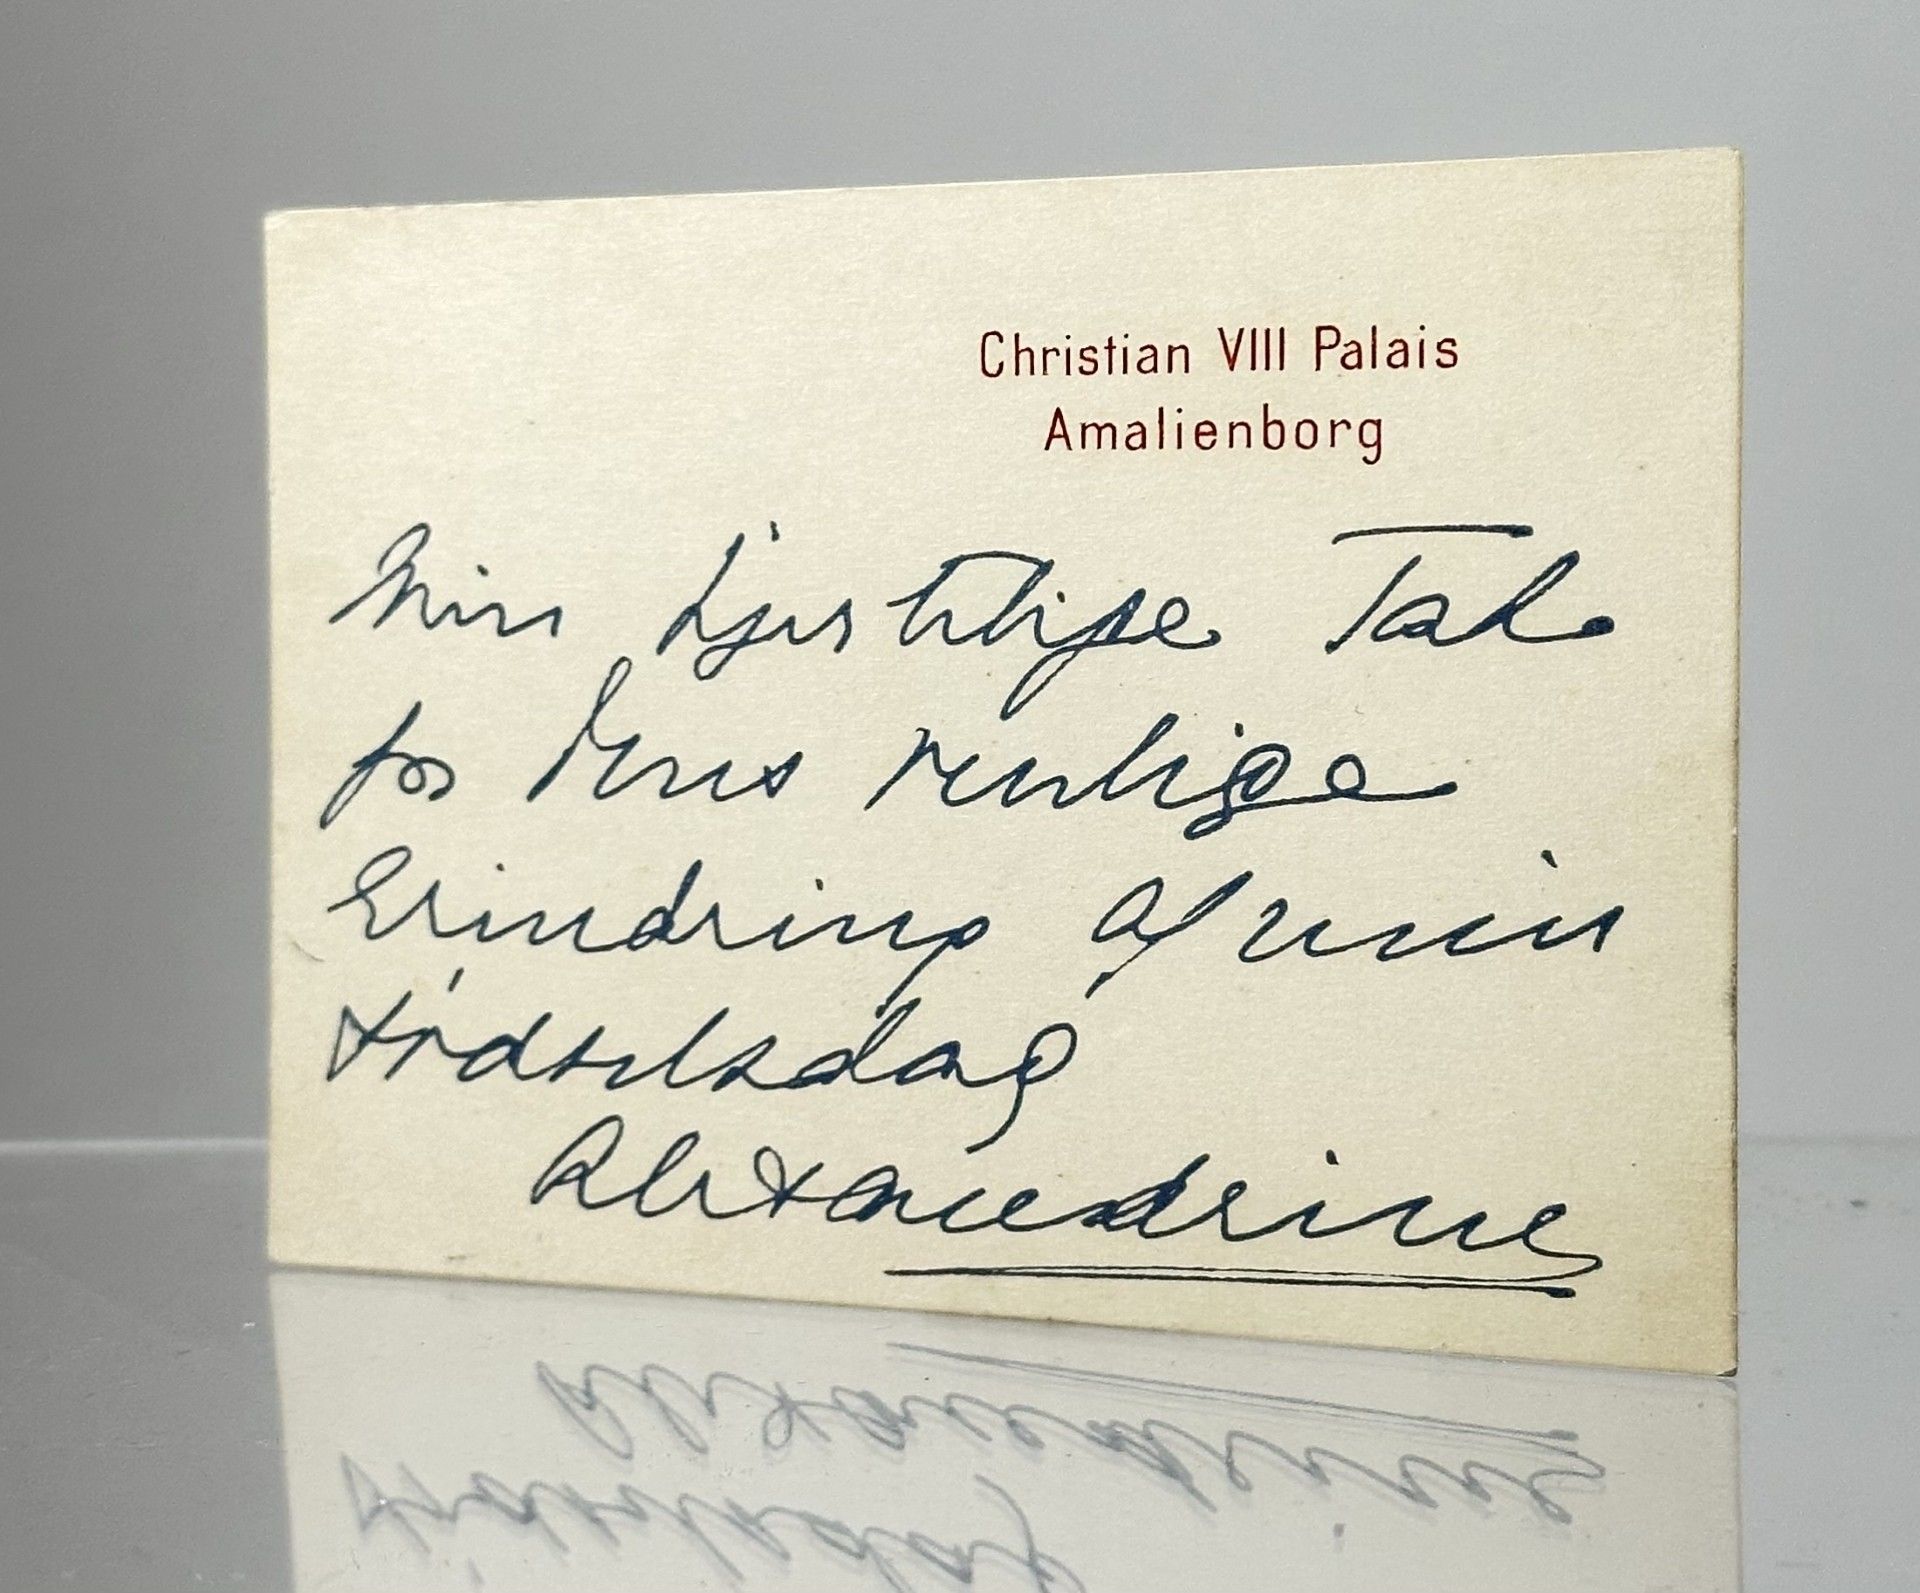 Christian VIII Palais
Amalienborg
Min hjerteligste Tak
for Deres venlige
Erindring af min
Fødselsdag
Alexandrine